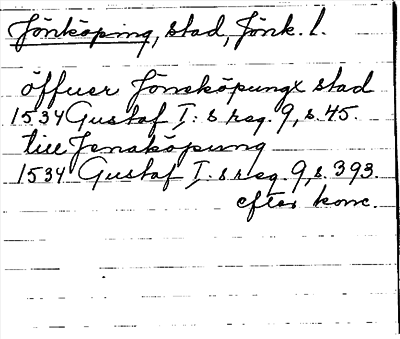 Jönköping, stad, Jönk. l.
öffuer Jönsköpungx stad
1534 Gustaf I:s reg. 9, s. 45.
till Jenaköpung
1534 Gustaf I:s reg. 9, s. 393.
efter konc.